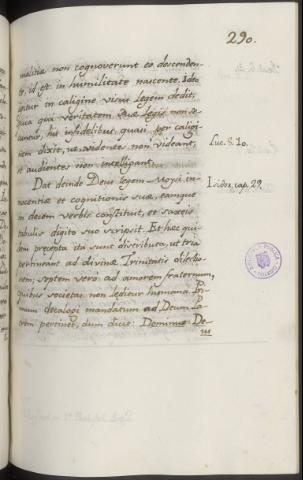 290.
malitia non cognoverunt eo descenden-
te, id est in humilitate nascente. Ideo
igitur in caligine visus legem dedit,
quia qui veritatem suæ legis non se-
cuntur, hii infidelibus, quasi per caligi-
nem dixit, ut videntes non videant,
et audientes non intelligant.
Luc. 8. 10.
Dat deinde Deus legem Moysi in-
nocentiæ et cognitionis suæ, eamque
Isido. cap. 29.
in decem verbis constituit, et saxeis
tabulis digito suo scripsit. Et hæc qui-
dem precepta ita sunt distributa, ut tria
pertineant ad divinæ Trinitatis dilectio-
nem; septem vero ad amorem fraternum,
quibus societas non leditur humana. Pri-
mum decalogi mandatum ad Deum Pa-
trem pertinet, dum dicit: Dominus De-
us